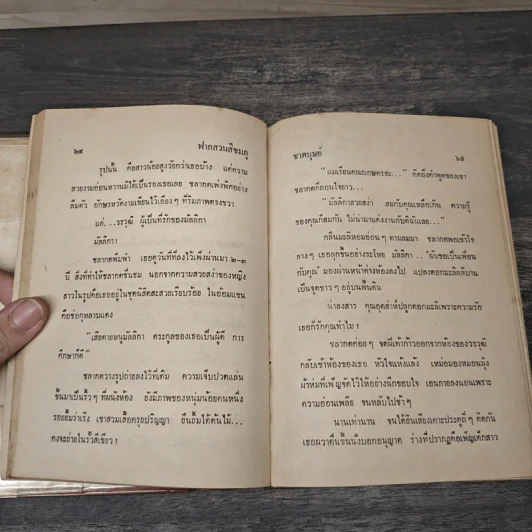 ๖๔
ฟากสวนสีชมภู
รูปนั้น คือสาวน้อยสูงวัยกว่าเธอบ้าง แต่ความ
สวยงามอ่อนหวานมิได้เป็นรองเธอเลย ชลากดเพ่งพิศอย่าง
ลืมตัว อักษรหวัดงามเขียนไว้เฉียงๆ ที่ริมภาพตรงขวา
แด่...วรวุฒิ ผู้เป็นที่รักของมัลลิกา
มัลลิกา!
ชลากดพึมพำ เธอดูวันที่ที่ลงไว้เพิ่งผ่านมา ๒-๓
ปี สิ่งที่ทำให้ชลากดชื่นชม นอกจากความสวยสง่าของหญิง
สาวในรูปคือเธออยู่ในชุดนิสิตสะสวยเรียบร้อย ในอ้อมแขน
คือช่อกุหลาบแดง
"เสียดายหนูมัลลิกา ตระกูลของเธอเป็นผู้ดี การ
ศึกษาก็ดี"
ชลากดวางรูปถ่ายลงไว้ที่เดิม ความเจ็บปวดแล่น
ขึ้นมาเป็นริ้วๆ ที่ผนังห้อง ยังมีภาพของหนุ่มน้อยคนหนึ่ง
รอยยิ้มร่าเริง เขาสวมเสื้อครุยปริญญา ยืนยิ้มใต้ต้นไม้...
คงจะถ่ายในรั้วสีเขียว!
ชาตบุษย์
๖๕
"แมเรียนคณะเกษตรซะ..." คิดถึงคำพูดของเขา
ชลากดก็ถอนใจยาว...
"มัลลิกาสวยสง่า สมกับคุณเหลือเกิน ความรู้
ของคุณก็สมกัน ไม่น่ามาแต่งงานกับดิฉันเลย..."
กลิ่นมะลิหอมอ่อนๆ ตามลมมา ชลากดพอเข้าใจ
ลางๆ เธอลุกขึ้นอย่างระโหย มัลลิกา... ฉันขอเป็นเพื่อน
กับคุณ มองผ่านหน้าต่างห้องลงไป แปลงดอกมะลิผลิบาน
เป็นจุดขาวๆ อยู่บนพื้นดิน
น่าสงสาร คุณอุตส่าห์ปลูกดอกมะลิเพราะความรัก
เธอก็รักคุณทำไม!
ชลากดค่อยๆ จดฝีเท้าก้าวออกจากห้องของวรวุฒิ
กลับเข้าห้องของเธอ หัวใจแห้งแล้ง เหม่อมองหมอนมุ้ง
ผ้าห่มที่เพ็ญจัดไว้ให้อย่างนึกขอบใจ เอนกายลงนอนเพราะ
ความอ่อนเพลีย จนหลับไปช้าๆ
นานเท่านาน จนได้ยินเสียงเคาะประตูถี่ๆ ติดกัน
เธอผวาตื่นขึ้นนั่งบอกอนุญาต ร่างที่ปรากฏคือเพ็ญเด็กสาว